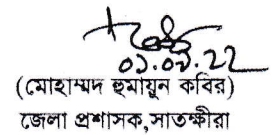 (মোহাম্মদ হুমায়ুন কবির)
জেলা প্রশাসক,সাতক্ষীরা